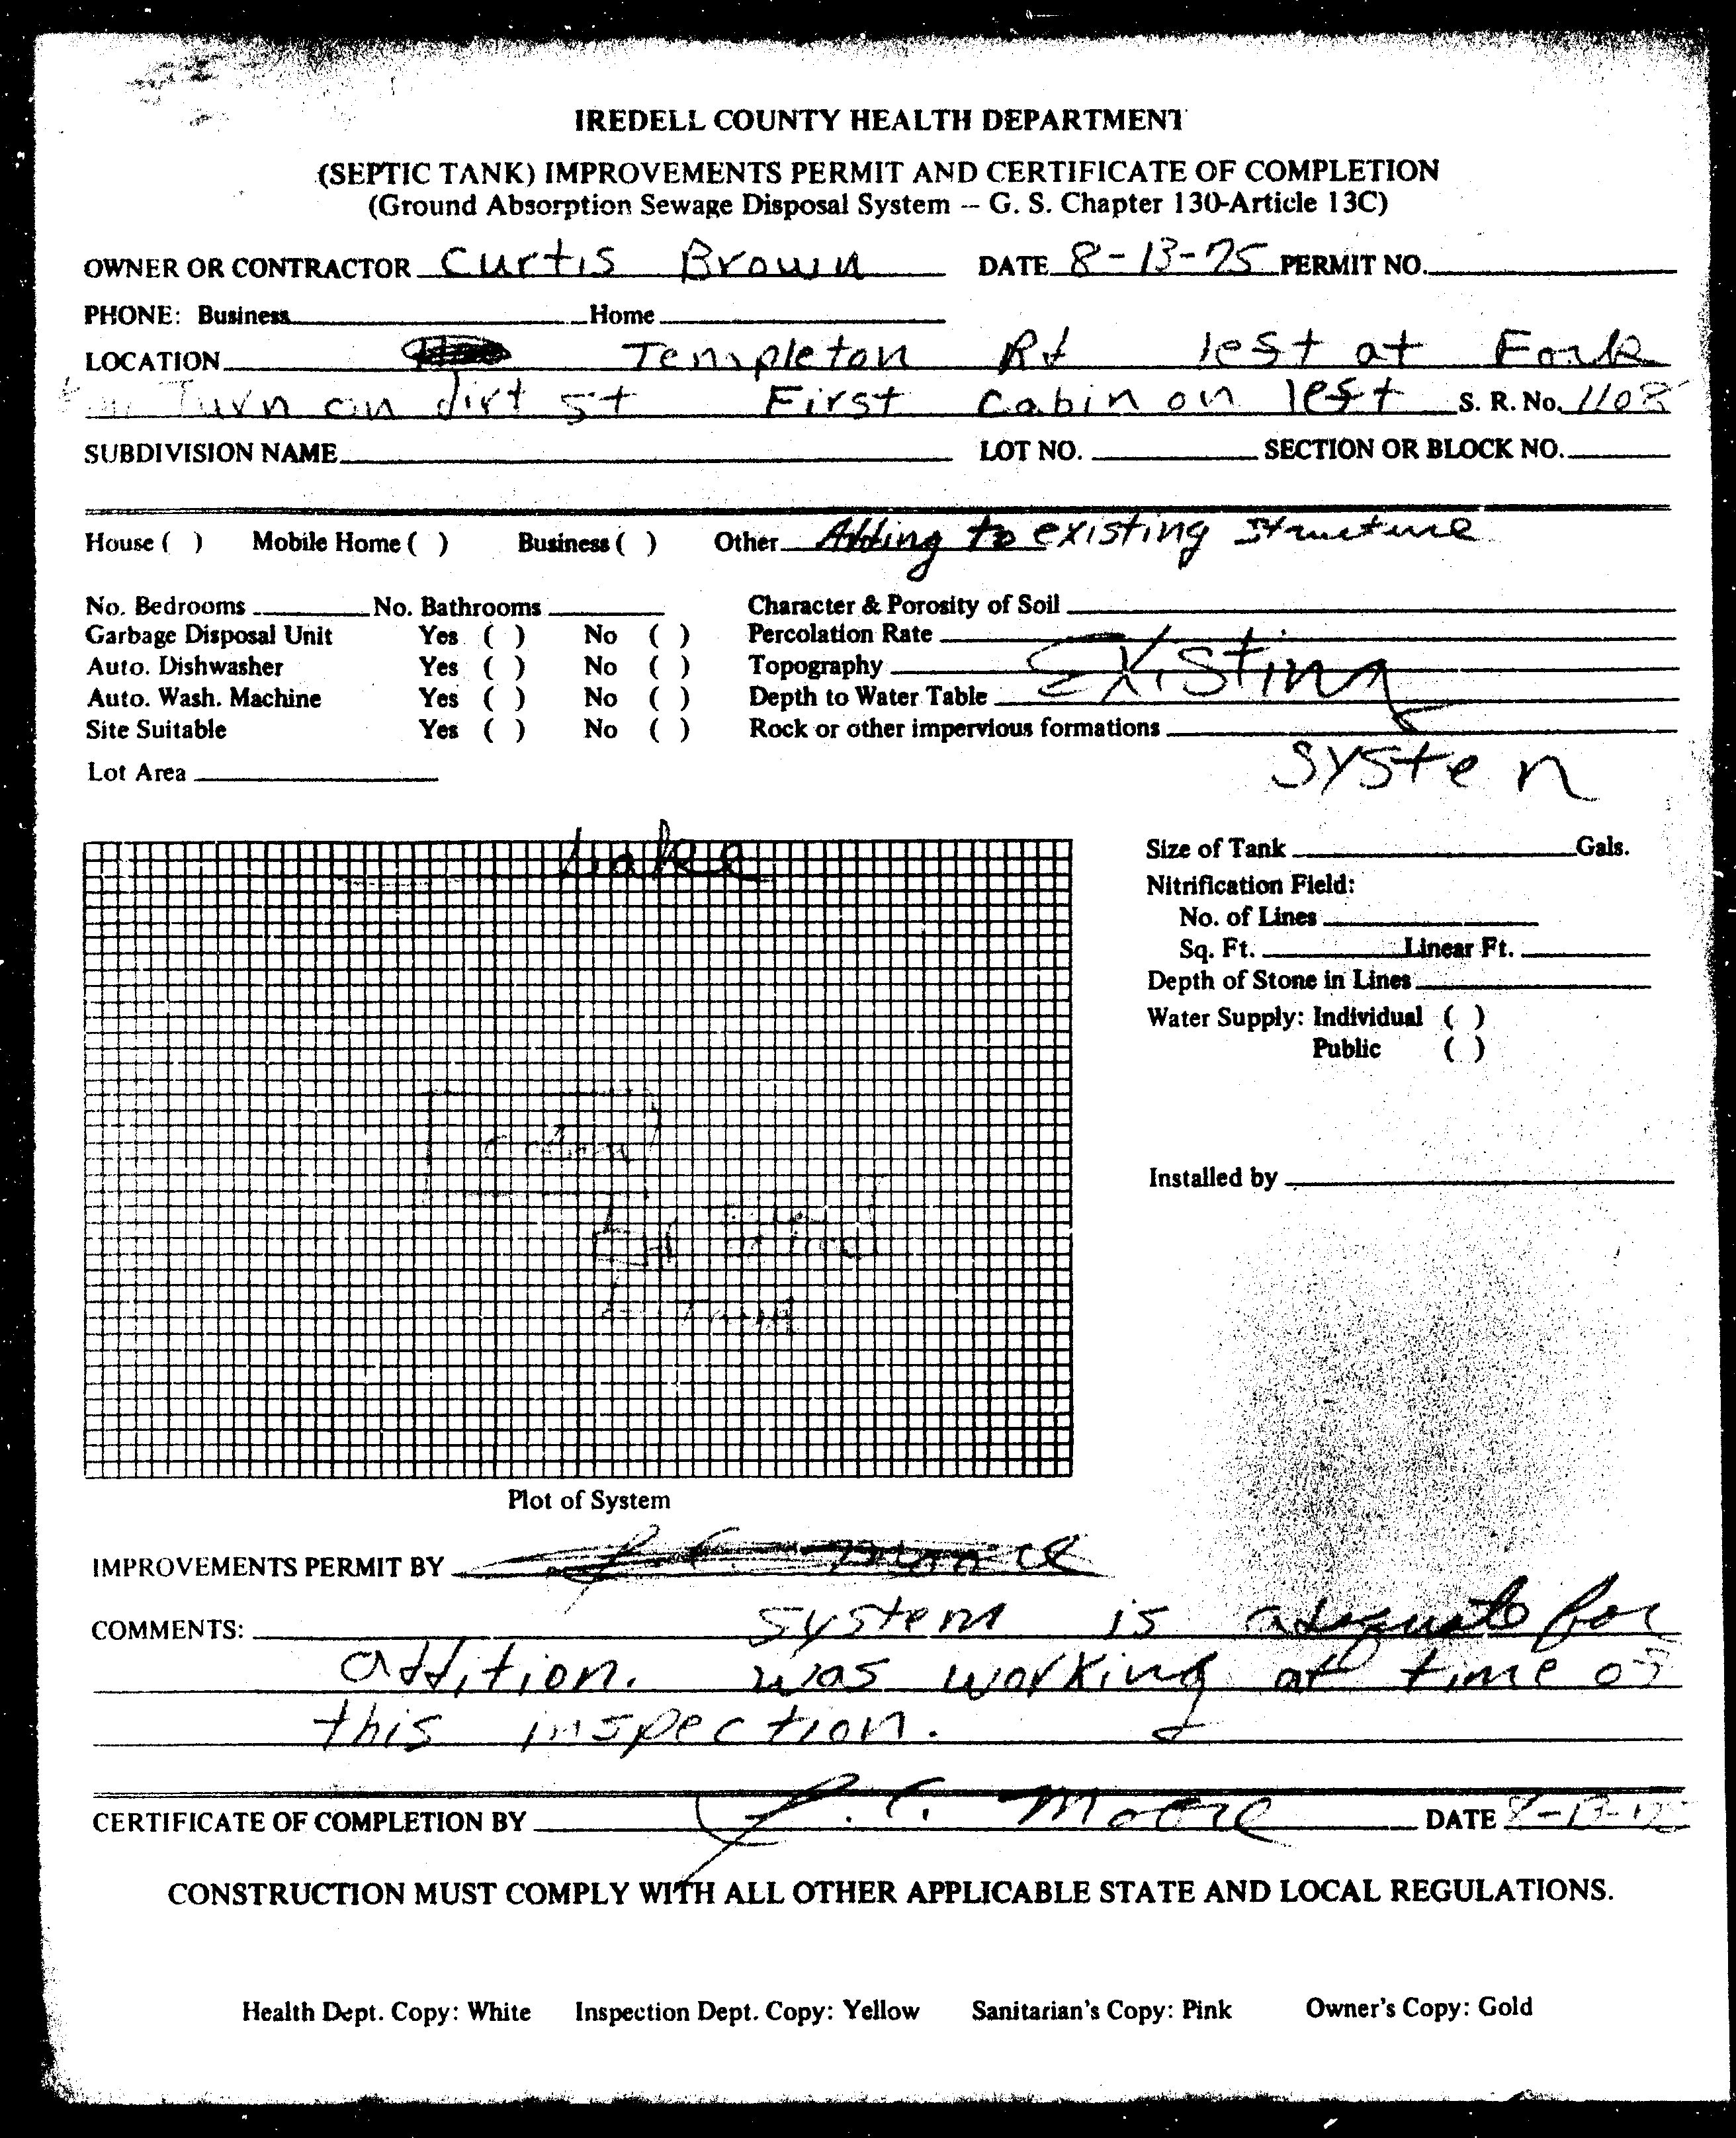 IREDELL COUNTY HEALTH DEPARTMENT
(SEPTIC TANK) IMPROVEMENTS PERMIT AND CERTIFICATE OF COMPLETION
(Ground Absorption Sewage Disposal System -- G. S. Chapter 130-Article 13C)
OWNER OR CONTRACTOR Curtis Brown DATE 8-13-75 PERMIT NO.
PHONE: Business Home
LOCATION Templeton Rd left at Fork
Turn on dirt st First Cabin on left S. R. No. 1108
SUBDIVISION NAME LOT NO. SECTION OR BLOCK NO.
House ( ) Mobile Home ( ) Business ( ) Other Adding to existing structure
No. Bedrooms No. Bathrooms Character & Porosity of Soil
Garbage Disposal Unit Yes ( ) No ( ) Percolation Rate
Auto. Dishwasher Yes ( ) No ( ) Topography Existing
Auto. Wash. Machine Yes ( ) No ( ) Depth to Water Table
Site Suitable Yes ( ) No ( ) Rock or other impervious formations
Lot Area system
Lake
Size of Tank Gals.
Nitrification Field:
No. of Lines
Sq. Ft. Linear Ft.
Depth of Stone in Lines
Water Supply: Individual ( )
Public ( )
Installed by
Plot of System
IMPROVEMENTS PERMIT BY
COMMENTS: system is adequate for
addition. was working at time of
this inspection.
CERTIFICATE OF COMPLETION BY J. C. Moore DATE 8-13-75
CONSTRUCTION MUST COMPLY WITH ALL OTHER APPLICABLE STATE AND LOCAL REGULATIONS.
Health Dept. Copy: White Inspection Dept. Copy: Yellow Sanitarian's Copy: Pink Owner's Copy: Gold